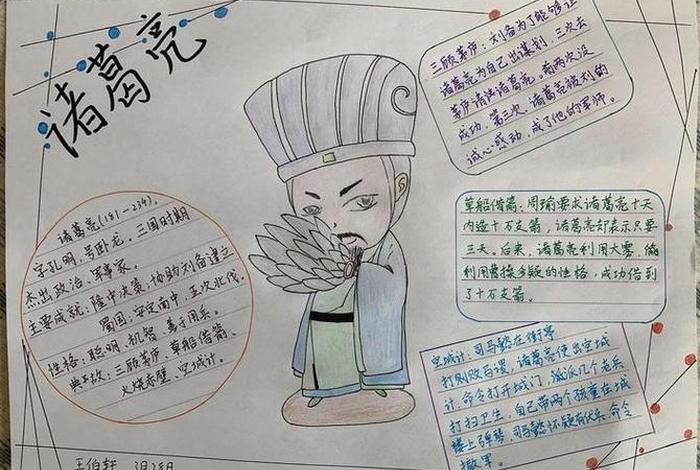 诸葛亮
三顾茅庐：刘备为了能够让
诸葛亮为自己出谋划，三次去
茅庐请诸葛亮。前两次没
成功，第三次，诸葛亮被刘的
诚心感动，成了他的军师。
诸葛亮(181-234)，
字孔明，号卧龙，三国时期
杰出政治、军事家。
主要成就：隆中决策，协助刘备建立
蜀国，安定南中，五次北伐。
性格：聪明、机智、善于用兵。
典故：三顾茅庐、草船借箭、
火烧赤壁、空城计。
草船借箭：周瑜要求诸葛亮十天
内造十万支箭，诸葛亮却表示只要
三天。后来，诸葛亮利用大雾，
利用曹操多疑的性格，成功借到
了十万支箭。
空城计：司马懿在街亭
打败马谡，诸葛亮使出空城
计，命令打开城门，派几个老兵
打扫卫生，自己带两个孩童在城
楼上弹琴，司马懿怀疑有伏兵，命令
撤军。
王伯轩 3月28日